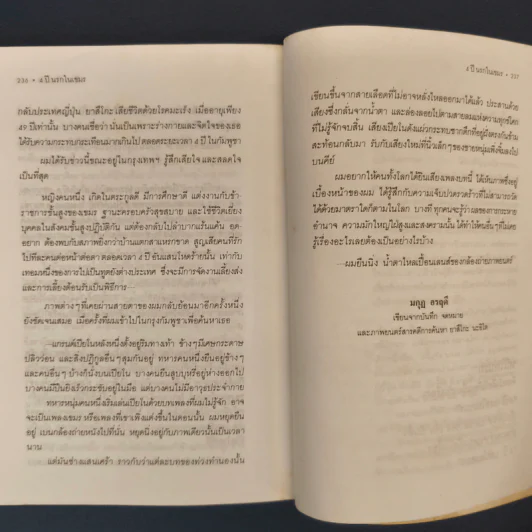 236 • 4 ปี นรกในเขมร
กลับประเทศญี่ปุ่น ยาสึโกะ เสียชีวิตด้วยโรคมะเร็ง เมื่ออายุเพียง
49 ปีเท่านั้น บางคนเชื่อว่า นั่นเป็นเพราะร่างกายและจิตใจของเธอ
ได้รับความกระทบกระเทือนมากเกินไปตลอดระยะเวลา 4 ปี ในกัมพูชา
ผมได้รับข่าวนี้ขณะอยู่ในกรุงเทพฯ รู้สึกเสียใจ และสลดใจ
เป็นที่สุด
หญิงคนหนึ่ง เกิดในตระกูลดี มีการศึกษาดี แต่งงานกับข้า
ราชการชั้นสูงของเขมร ฐานะครอบครัวสุขสบาย และใช้ชีวิตเยี่ยง
บุคคลในสังคมชั้นสูงปฏิบัติกัน แต่ต้องกลับไปลำบากแร้นแค้น อด
อยาก ต้องพบกับสภาพยิ่งกว่าบ้านแตกสาแหรกขาด สูญเสียคนที่รัก
ไปทีละคนต่อหน้าต่อตา ตลอดเวลา 4 ปี อันแสนโหดร้ายนั้น เท่ากับ
เทอมหนึ่งของการไปเป็นทูตยังต่างประเทศ ซึ่งจะมีการจัดงานเลี้ยงส่ง
และการเลี้ยงต้อนรับเป็นพิธีการ—
ภาพต่างๆ ที่เคยผ่านสายตาของผมกลับย้อนมาอีกครั้งหนึ่ง
ยังชัดเจนเสมอ เมื่อครั้งที่ผมเข้าไปในกรุงกัมพูชาเพื่อค้นหาเธอ
—แกรนด์เปียโนหลังหนึ่งตั้งอยู่ริมทางเท้า ข้างๆ มีเศษกระดาษ
ปลิวว่อน และสิ่งปฏิกูลอื่นๆ สุมกันอยู่ ทหารคนหนึ่งยืนอยู่ข้างๆ
และคนอื่นๆ บ้างก็นั่งบนเปียโน บางคนสูบบุหรี่อยู่ห่างออกไป
บางคนมีปืนยิงเร็วกระชับอยู่ในมือ แต่บางคนไม่มีอาวุธประจำกาย
ทหารหนุ่มคนหนึ่งเริ่มเล่นเปียโนด้วยบทเพลงที่ผมไม่รู้จัก อาจ
จะเป็นเพลงเขมร หรือเพลงที่เขาเพิ่งแต่งขึ้นในตอนนั้น ผมหยุดยืน
อยู่ เบนกล้องถ่ายหนังไปที่นั่น หยุดนิ่งอยู่กับภาพเดียวนั้นเป็นเวลา
นาน
แต่มันช่างแสนเศร้า ราวกับว่าแต่ละบทของท่วงทำนองนั้น
4 ปี นรกในเขมร • 237
เขียนขึ้นจากสายเลือดที่ไม่อาจหลั่งไหลออกมาได้แล้ว ประสานด้วย
เสียงซึ่งกลั่นจากน้ำตา และล่องลอยไปตามสายลมแห่งความทุกข์โศก
ที่ไม่รู้จักจบสิ้น เสียงเปียโนดังแผ่วกระทบซากตึกที่อยู่ฝั่งตรงกันข้าม
สะท้อนกลับมา รับกับเสียงใหม่ที่นิ้วเล็กๆ ของชายหนุ่มเพิ่งพิ้นลงไป
บนคีย์
ผมอยากให้คนทั้งโลกได้ยินเสียงเพลงบทนี้ ได้เห็นภาพซึ่งอยู่
เบื้องหน้าของผม ได้รู้สึกกับความเจ็บปวดรวดร้าวที่ไม่สามารถวัด
ได้ด้วยมาตราใดก็ตามในโลก บางที ทุกคนจะรู้ว่า ผลของการกระหาย
อำนาจ ความมักใหญ่ใฝ่สูงและสงครามนั้น ได้ทำให้คนอื่นๆ ที่ไม่เคย
รู้เรื่องอะไรเลยต้องเป็นอย่างไรบ้าง
—ผมยืนนิ่ง น้ำตาไหลเปื้อนเลนส์ของกล้องถ่ายภาพยนตร์
มกุฏ อรฤดี
เขียนจากบันทึก จดหมาย
และภาพยนตร์สารคดีการค้นหา ยาสึโกะ นะอิโต